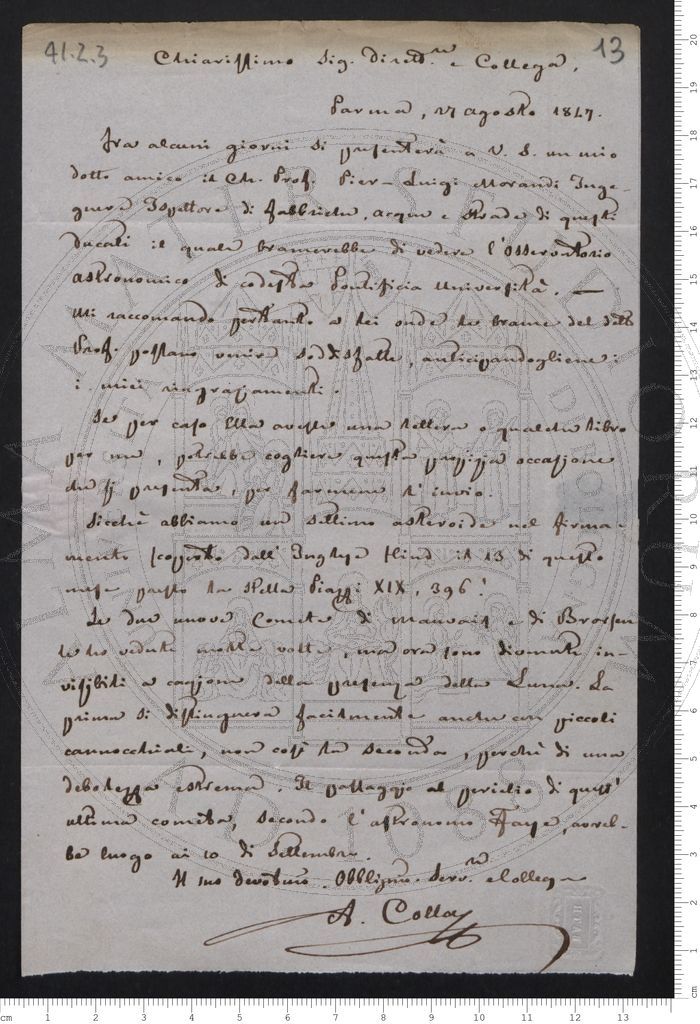 41.2.3
13
Chiarissimo Sig. Dirett.re e Collega,
Parma, 27 agosto 1847.
Fra alcuni giorni si presenterà a V. S. un mio
dotto amico il Ch. Prof. Pier-Luigi Morandi Inge-
gnere Ispettore di fabbriche, acque e strade di questi
ducati il quale bramerebbe di vedere l'osservatorio
astronomico di codesta Pontificia Università. —
Mi raccomando pertanto a Lei onde le brame del detto
Prof. possano venire soddisfatte, anticipandogliene
i miei ringraziamenti.
Se per caso Ella avesse una lettera o qualche libro
per me, potrebbe cogliere questa propizia occasione
che si presenta, per farmene l'invio.
Sicchè abbiamo un settimo asteroide nel firma-
mento scoperto dall'Inglese Hind il 13 di questo
mese presso la stella Piazzi XIX, 396!
Le due nuove Comete di Mauvais e di Brorsen
le ho vedute molte volte, ma ora sono divenute in-
visibili a cagione della presenza della Luna. La
prima si distingueva facilmente anche con piccoli
cannocchiali, non così la seconda, perchè di una
debolezza estrema. Il passaggio al perielio di quest'
ultima cometa, secondo l'astronomo Faye, avreb-
be luogo ai 10 di Settembre.
Il suo devotmo. Obbligmo. Serv.re e Collega
A. Colla